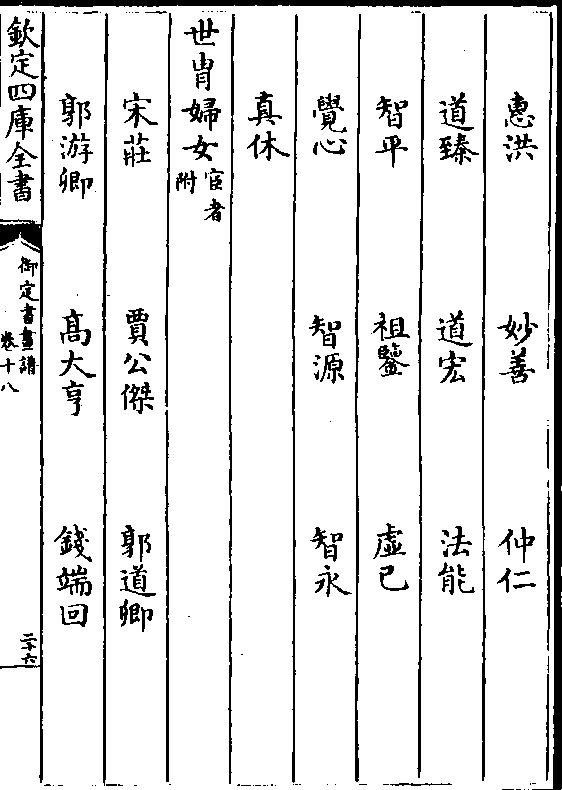 惠洪　妙善　仲仁
道臻　道宏　法能
智平　祖鑒　虛已
覺心　智源　智永
真休
世胄婦女宦者附
宋莊　賈公傑　郭道卿
郭游卿　髙大亨　錢端回
欽定四庫全書
御定書畫譜
卷十八
二十六